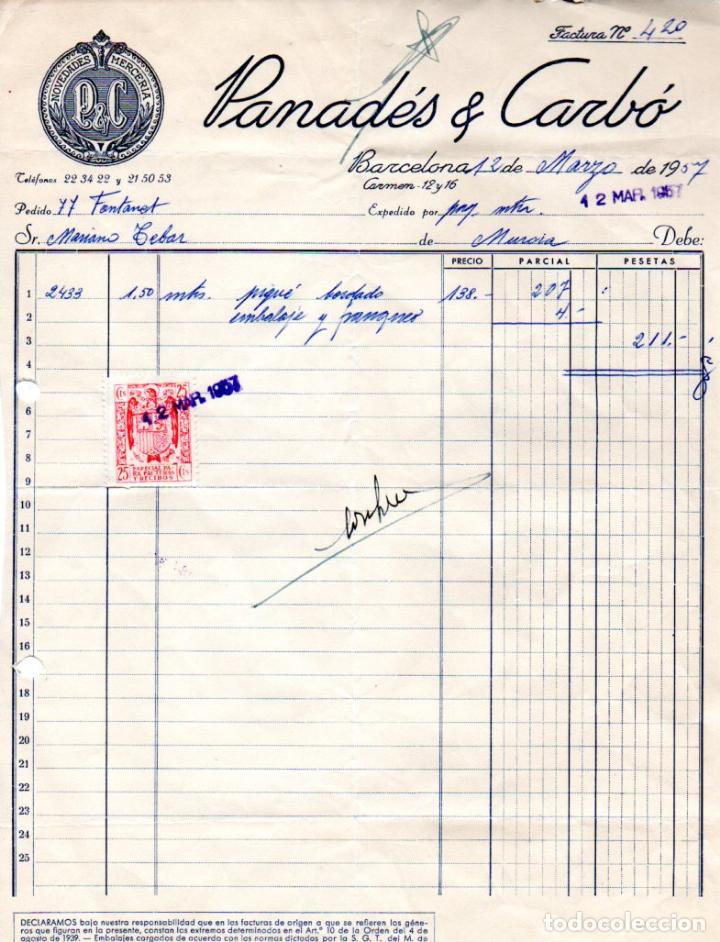 Factura Nº 420
NOVEDADES MERCERIA
P&C
Panadés & Carbó
Barcelona 12 de Marzo de 1957
Carmen - 12 y 16
12 MAR. 1957
Teléfonos 22 34 22 y 21 50 53
Pedido 77 Fontanet Expedido por paq. mtr.
Sr. Mariano Tebar de Murcia Debe:
PRECIO PARCIAL PESETAS
1 2433 1,50 mts. piqué bordado 138.- 207
2 embalaje y franqueo 4.-
3 211.-
4
25 Cts
12 MAR. 1957
6
7
8
ESPECIAL PA-
RA FACTURAS
Y RECIBOS
25 Cts
9
10
11
12
13
14
15
16
18
19
20
21
22
23
24
25
DECLARAMOS bajo nuestra responsabilidad que en las facturas de origen a que se refieren los géne-
ros que figuran en la presente, constan los extremos determinados en el Art.º 10 de la Orden del 4 de
agosto de 1939. — Embalajes cargados de acuerdo con las normas dictadas por la S. G. T. del M. de
todocoleccion.net